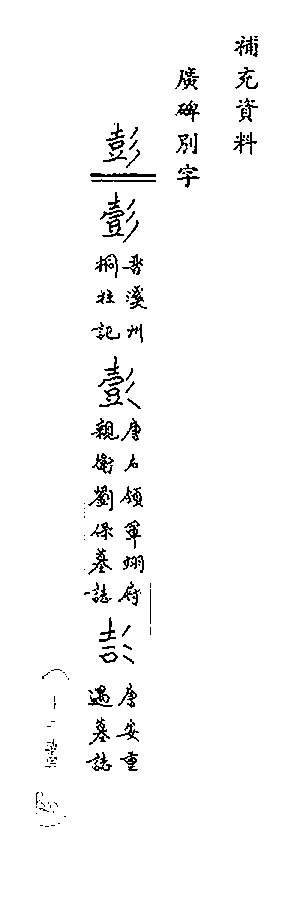 補充資料
廣碑別字
彭
彭
晉溪州
桐柱記
彭
唐右領軍翊府
親衛劉保墓誌
彭
唐安重
遇墓誌
十二畫